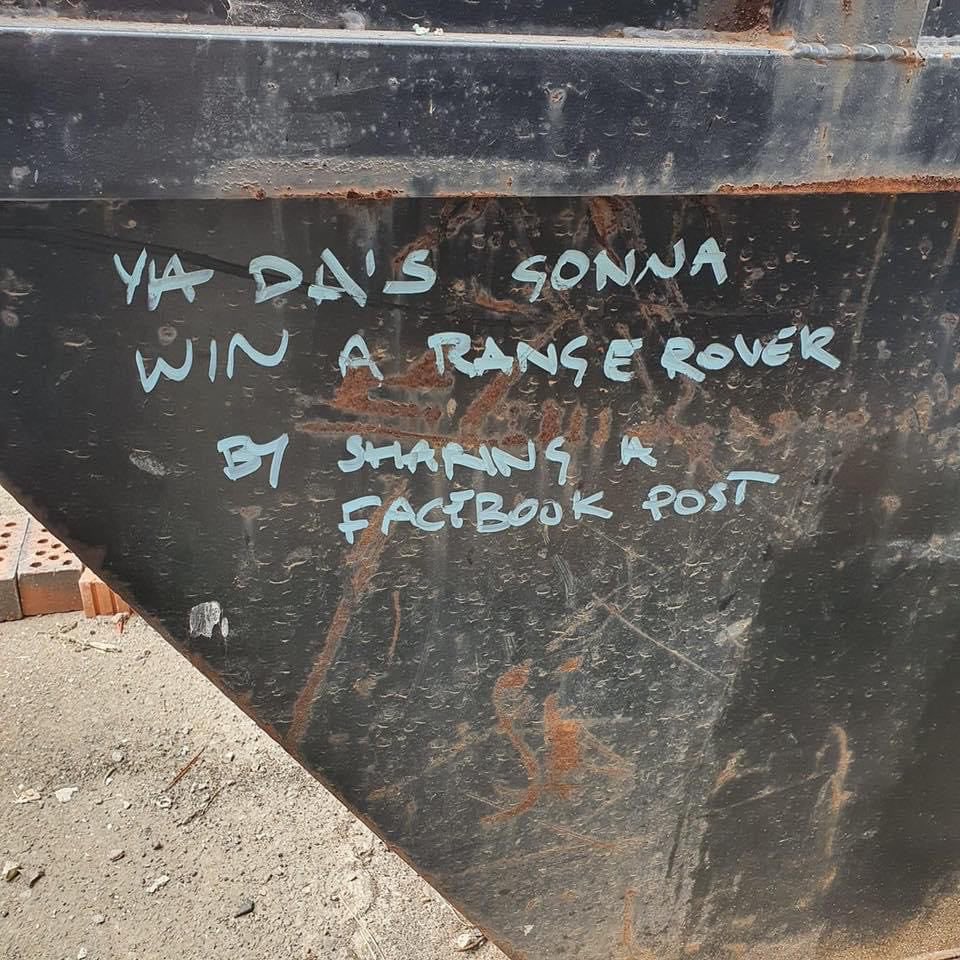 YA DA'S GONNA
WIN A RANGE ROVER
BY SHARING A
FACEBOOK POST